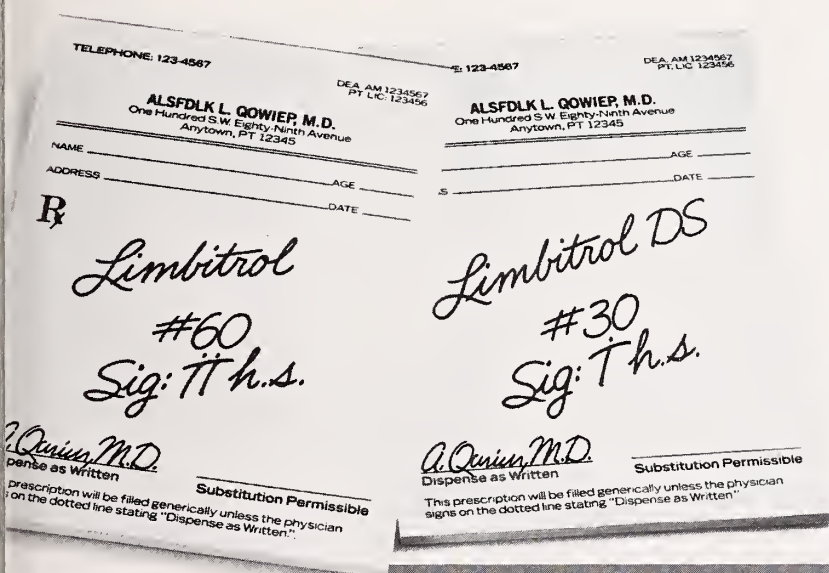 TELEPHONE: 123-4567
DEA. AM 1234567
PT LIC: 123456
ALSFDLK L. QOWIEP, M.D.
One Hundred S.W. Eighty-Ninth Avenue
Anytown, PT 12345
NAME AGE
ADDRESS DATE
Rx
Limbitrol
#60
Sig: ii h.s.
A. Qurius, M.D.
pense as Written
Substitution Permissible
prescription will be filled generically unless the physician
on the dotted line stating "Dispense as Written."
E: 123-4567
DEA. AM 1234567
PT. LIC 123456
ALSFDLK L. QOWIEP, M.D.
One Hundred S W. Eighty-Ninth Avenue
Anytown, PT 12345
AGE
S DATE
Limbitrol DS
#30
Sig: i h.s.
A. Qurius, M.D.
Dispense as Written
Substitution Permissible
This prescription will be filled generically unless the physician
signs on the dotted line stating "Dispense as Written"